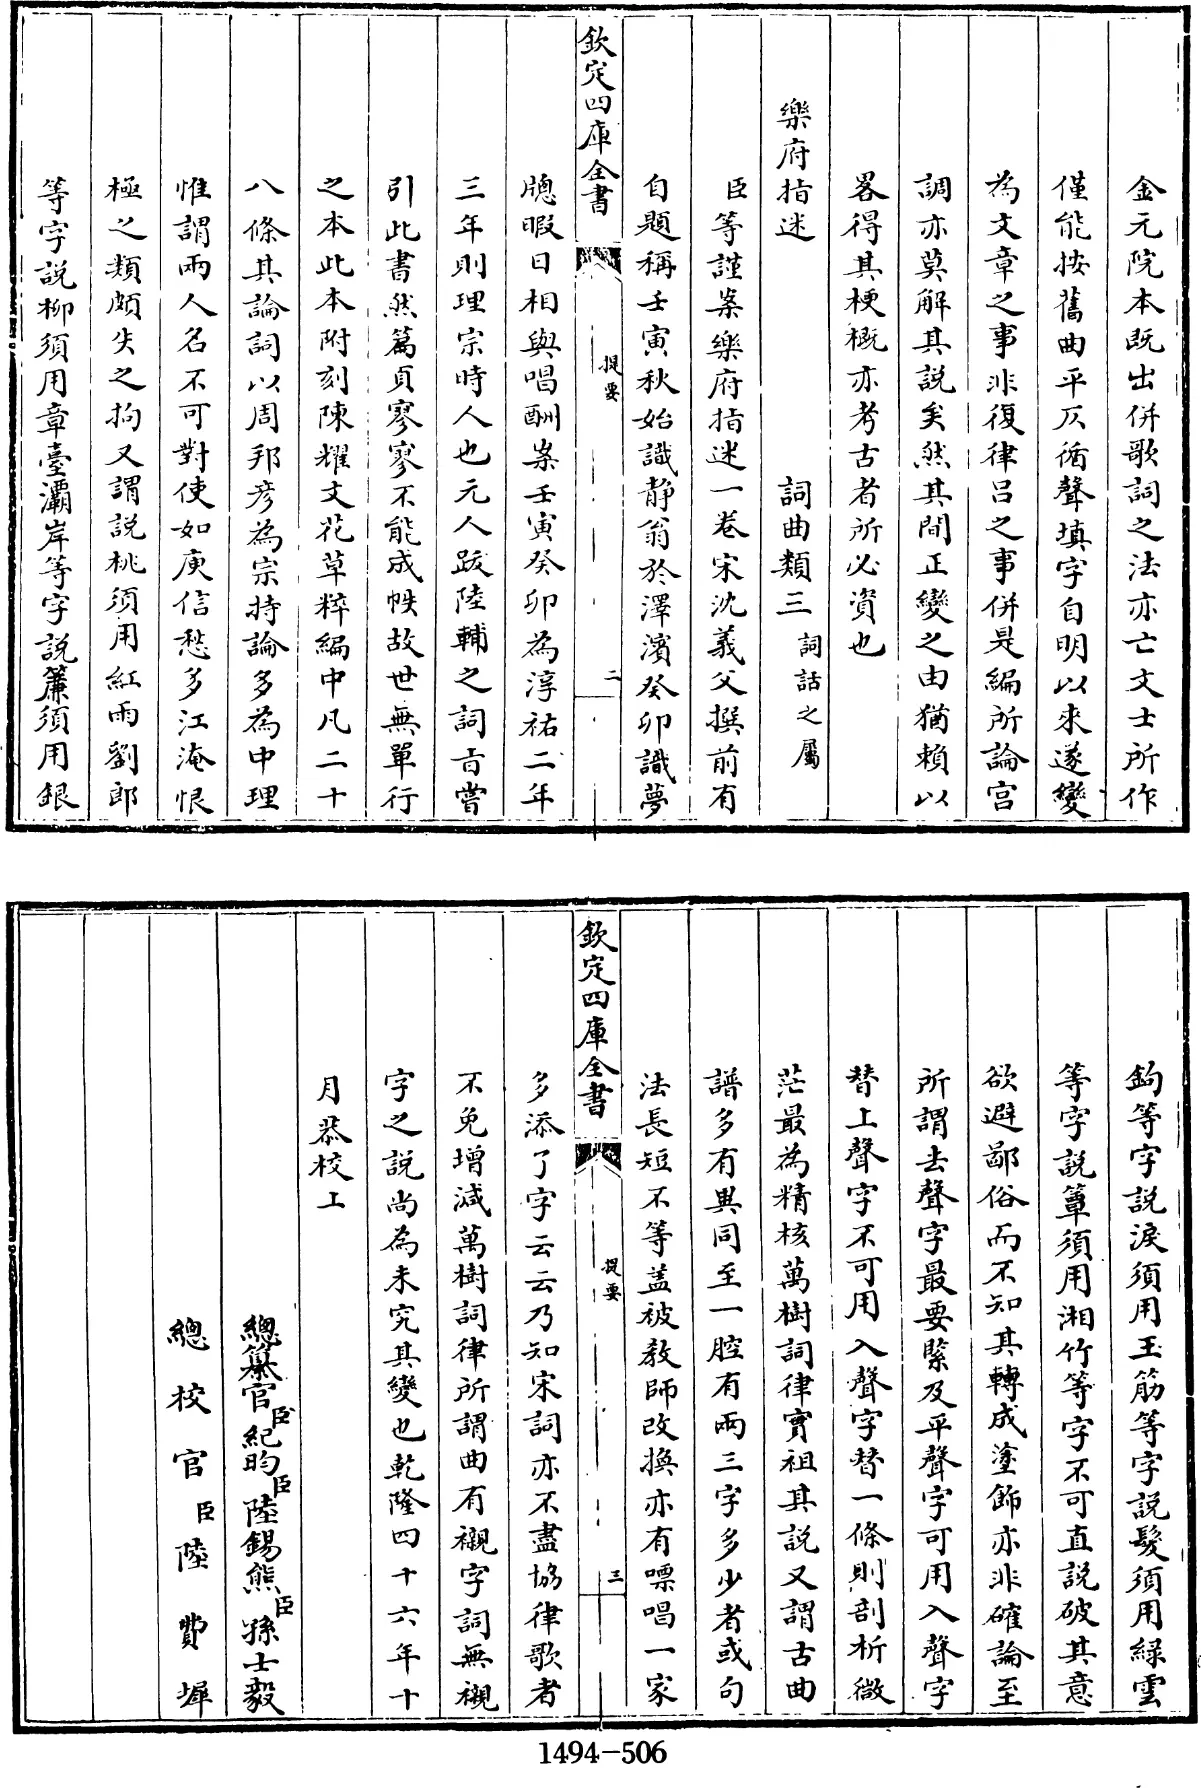 金元院本既出併歌詞之法亦亡文士所作
僅能按舊曲平仄循聲填字自明以來遂變
為文章之事非復律呂之事併是編所論宮
調亦莫解其說矣然其間正變之由猶賴以
畧得其梗概亦考古者所必資也
樂府指迷 詞曲類三 詞話之屬
臣等謹案樂府指迷一卷宋沈義父撰前有
自題稱壬寅秋始識靜翁於澤濱癸卯識夢
欽定四庫全書 提要 二
牕暇日相與唱酬案壬寅癸卯為淳祐二年
三年則理宗時人也元人跋陸輔之詞旨嘗
引此書然篇頁寥寥不能成帙故世無單行
之本此本附刻陳耀文花草粹編中凡二十
八條其論詞以周邦彥為宗持論多為中理
惟謂兩人名不可對使如庾信愁多江淹恨
極之類頗失之拘又謂說桃須用紅雨劉郎
等字說柳須用章臺灞岸等字說簾須用銀
鉤等字說淚須用玉筯等字說髮須用綠雲
等字說簟須用湘竹等字不可直說破其意
欲避鄙俗而不知其轉成塗飾亦非確論至
所謂去聲字最要緊及平聲字可用入聲字
替上聲字不可用入聲字替一條則剖析微
茫最為精核萬樹詞律實祖其說又謂古曲
譜多有異同至一腔有兩三字多少者或句
法長短不等盖被教師改換亦有嘌唱一家
欽定四庫全書 提要 三
多添了字云云乃知宋詞亦不盡協律歌者
不免增減萬樹詞律所謂曲有襯字詞無襯
字之說尚為未究其變也乾隆四十六年十
月恭校上
總纂官臣紀昀臣陸錫熊臣孫士毅
總校官臣陸費墀
1494-506